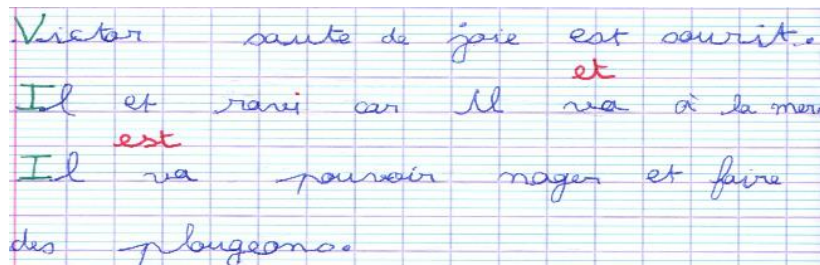 Victor saute de joie est sourit.
et
Il et ravi car Il va à la mer.
est
Il va pouvoir nager et faire
des plougeons.